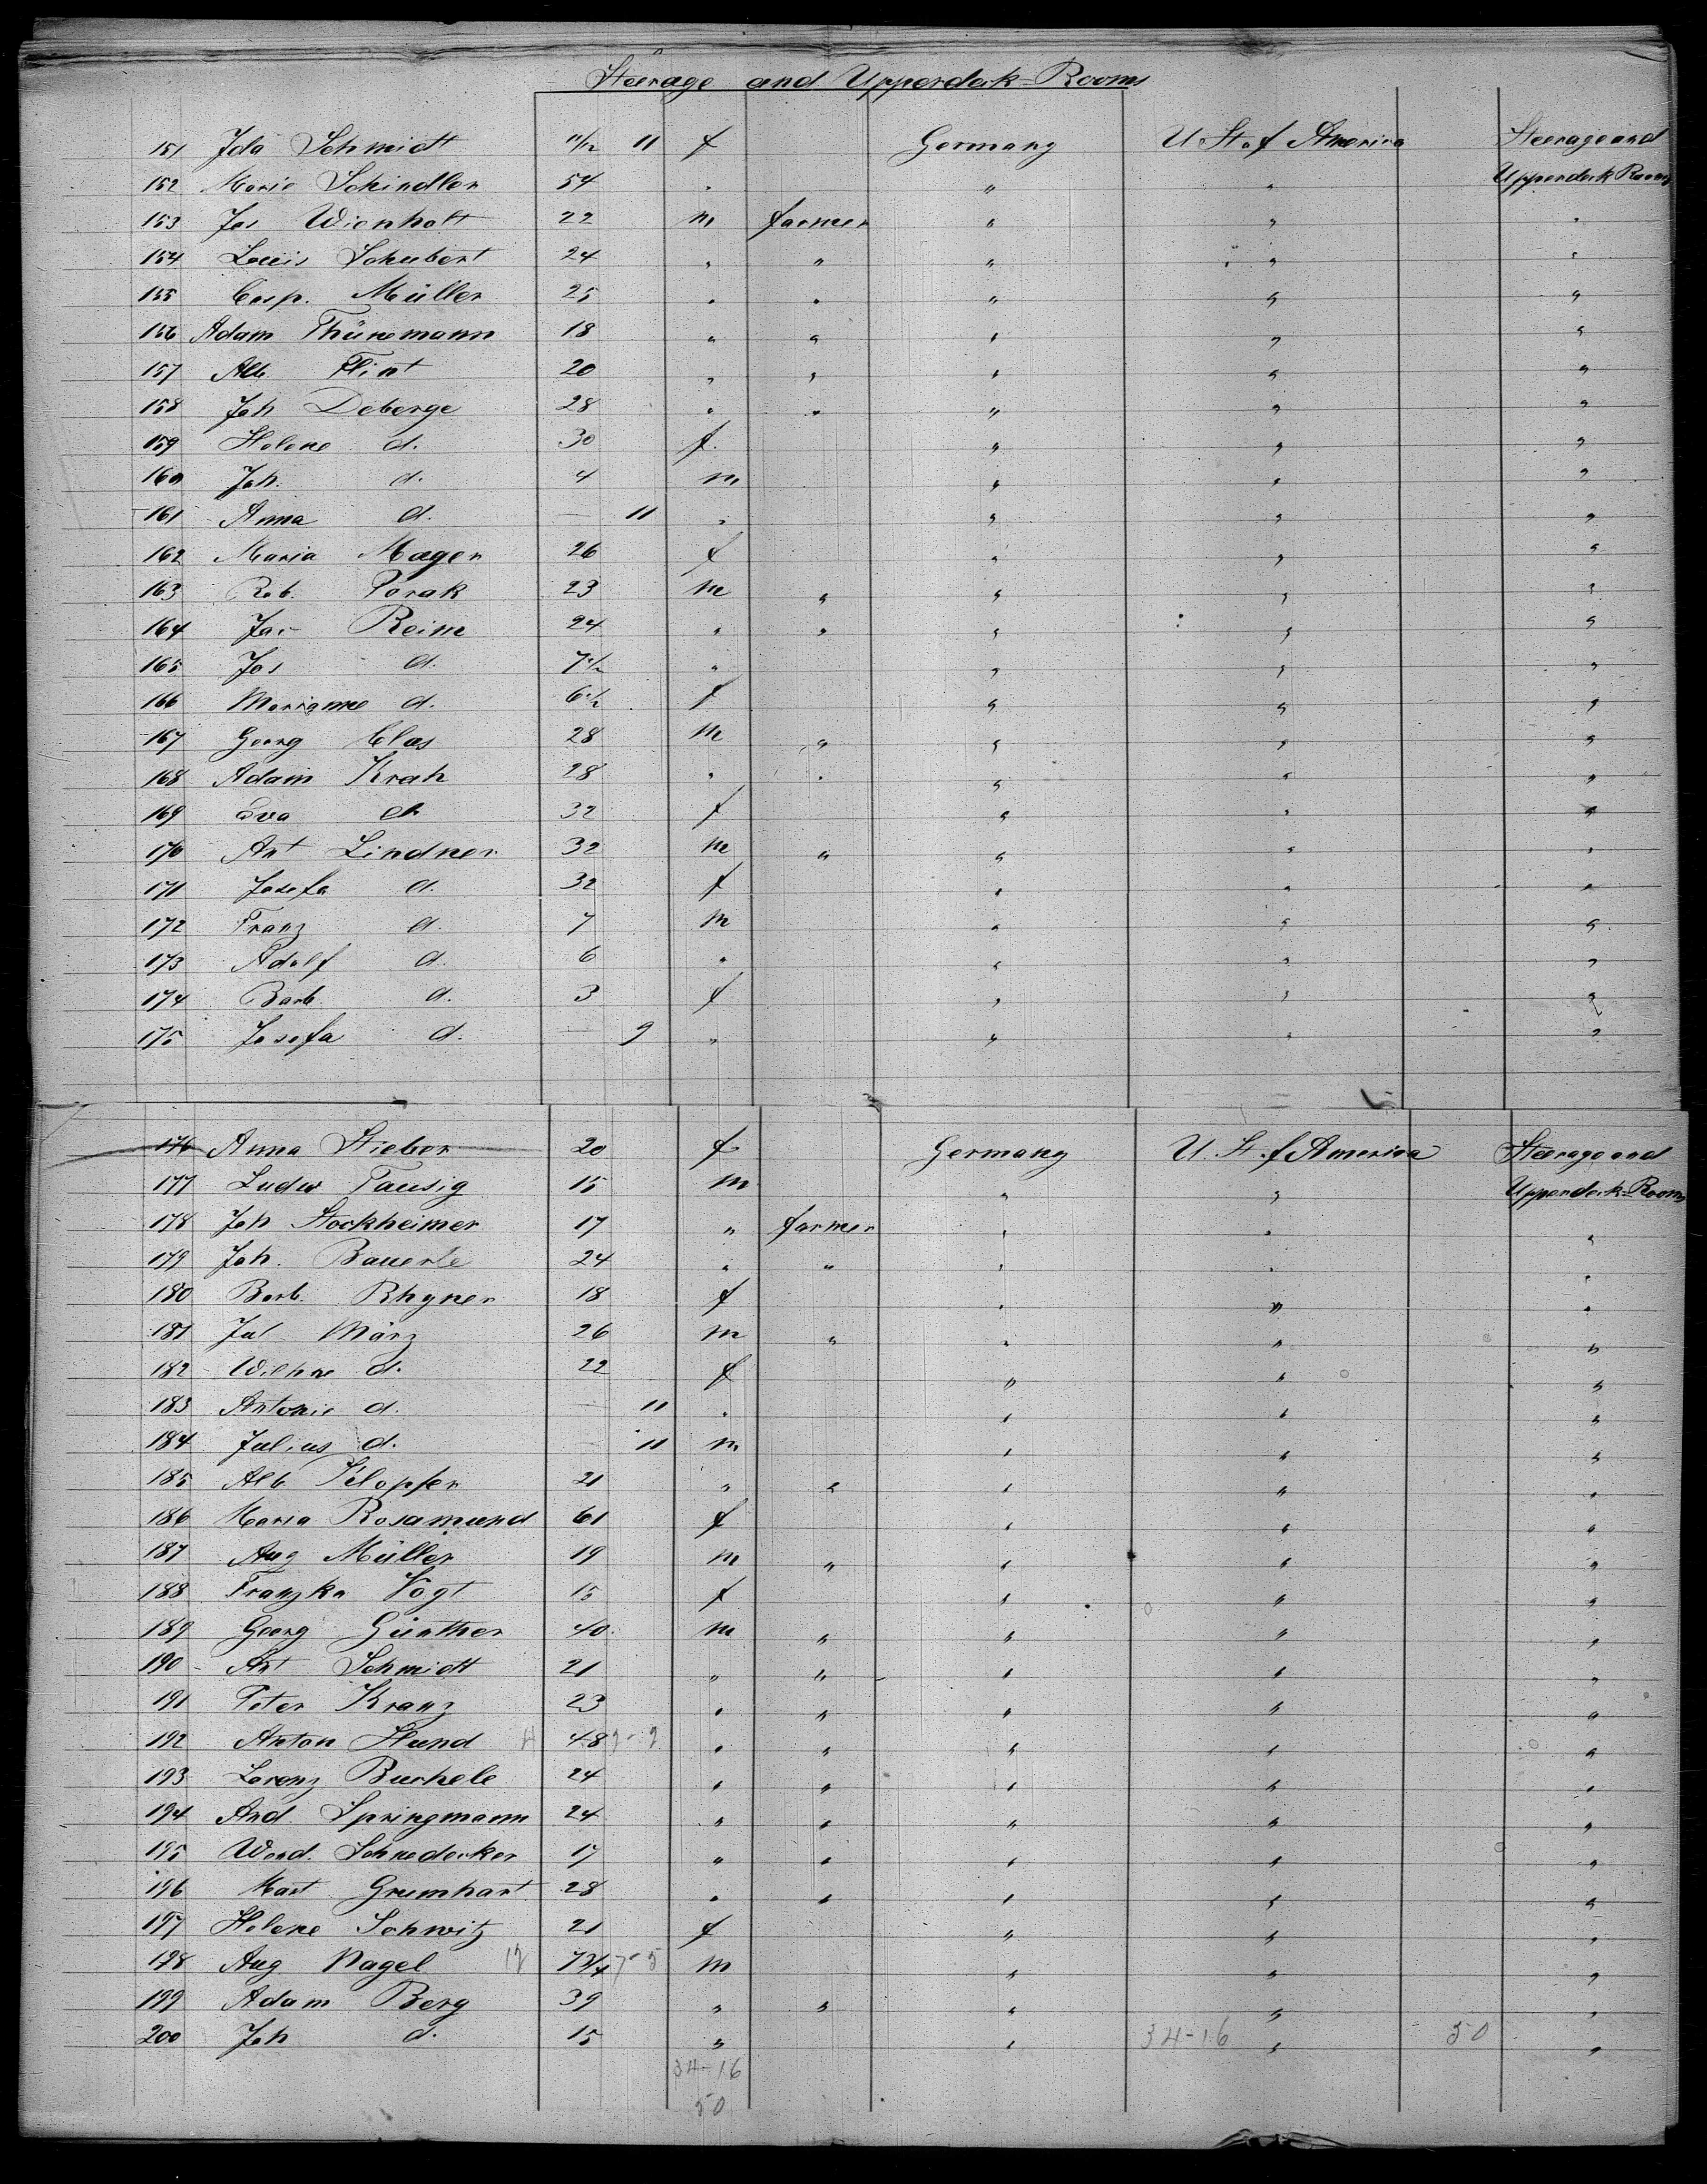 Steerage and Upperdeck-Rooms
151 Ida Schmidt 11/12 11 f Germany U St of America Steerage and
152 Marie Schindler 54 " " " Upperdeck Rooms
153 Jos Wienholt 22 m farmer " " "
154 Louis Schubert 24 " " " " "
155 Casp. Müller 25 " " " " "
156 Adam Thünemann 18 " " " " "
157 Alb. Flint 20 " " " " "
158 Joh Deberge 28 " " " " "
159 Helene d. 30 f. " " "
160 Joh. d. 4 m " " "
161 Anna d. — 11 " " " "
162 Maria Mager 26 f " " "
163 Rob. Porak 23 m " " " "
164 Jos Reim 24 " " " " "
165 Jos d. 7 1/2 " " " "
166 Marianne d. 6 1/2 f " " "
167 Georg Clas 28 m " " " "
168 Adam Krah 28 " " " " "
169 Eva d. 32 f " " "
170 Ant Lindner 32 m " " " "
171 Josefa d. 32 f " " "
172 Franz d. 7 m " " "
173 Adolf d. 6 " " " "
174 Barb d. 3 f " " "
175 Josefa d. — 9 " " " "
176 Anna Stieber 20 f Germany U. St. of America Steerage and
177 Ludw Tausig 15 m " " Upperdeck-Rooms
178 Joh Stockheimer 17 " farmer " " "
179 Joh. Bauerle 24 " " " " "
180 Barb. Rhyner 18 f " " "
181 Jul März 26 m " " " "
182 Wilhne d. 22 f " " "
183 Antonie d. — 11 " " " "
184 Julius d. — 11 m " " "
185 Alb Klopfer 21 " " " " "
186 Maria Rosamund 61 f " " "
187 Aug Müller 19 m " " " "
188 Franzka Vogt 15 f " " "
189 Georg Günther 40 m " " " "
190 Ant Schmidt 21 " " " " "
191 Peter Kranz 23 " " " " "
192 Anton Hund 48 " " " " "
193 Lorenz Buchele 24 " " " " "
194 And. Springmann 24 " " " " "
195 Wend. Schnedecker 17 " " " " "
196 Mart Grumhart 28 " " " " "
197 Helene Schwitz 21 f " " "
198 Aug Nagel 12 7 3/4 7-5 m " " "
199 Adam Berg 39 " " " " "
200 Joh d. 15 " " 34-16 " 50 "
34-16
50